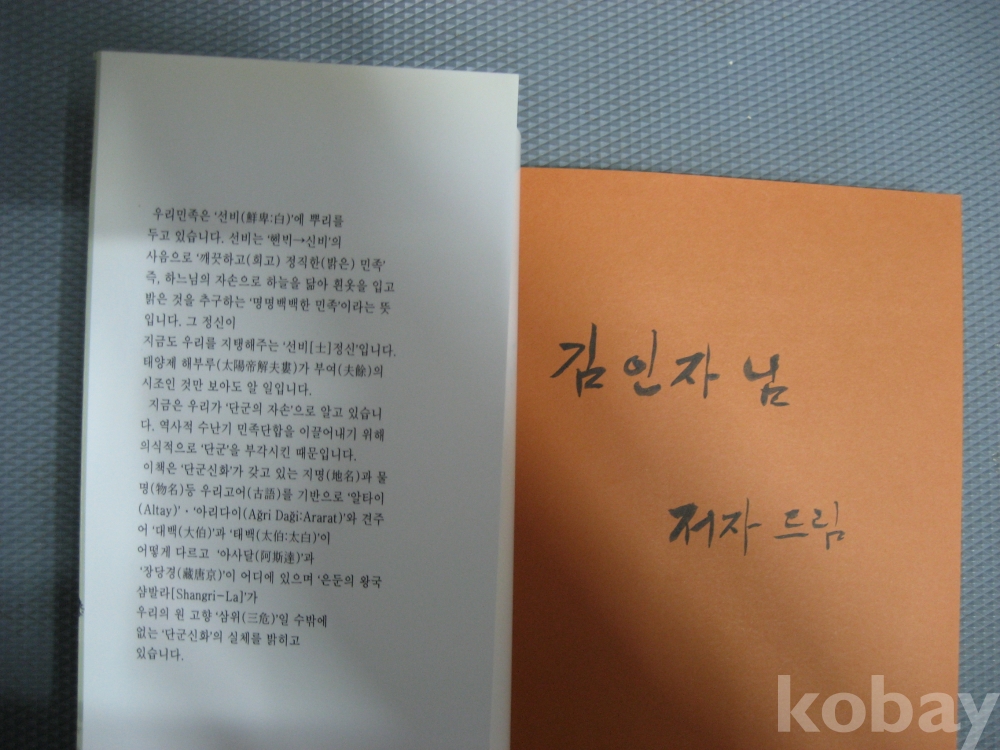 우리민족은 '선비(鮮卑:白)'에 뿌리를
두고 있습니다. 선비는 '헨빅→신비'의
사음으로 '깨끗하고(희고) 정직한(밝은) 민족'
즉, 하느님의 자손으로 하늘을 닮아 흰옷을 입고
밝은 것을 추구하는 '명명백백한 민족'이라는 뜻
입니다. 그 정신이
지금도 우리를 지탱해주는 '선비[士]정신'입니다.
태양제 해부루(太陽帝解夫婁)가 부여(夫餘)의
시조인 것만 보아도 알 일입니다.
지금은 우리가 '단군의 자손'으로 알고 있습니
다. 역사적 수난기 민족단합을 이끌어내기 위해
의식적으로 '단군'을 부각시킨 때문입니다.
이책은 '단군신화'가 갖고 있는 지명(地名)과 물
명(物名)등 우리고어(古語)를 기반으로 '알타이
(Altay)'·'아리다이(Ağri Daği:Ararat)'와 견주
어 '대백(大伯)'과 '태백(太伯:太白)'이
어떻게 다르고 '아사달(阿斯達)'과
'장당경(藏唐京)'이 어디에 있으며 '은둔의 왕국
샴발라[Shangri-La]'가
우리의 원 고향 '삼위(三危)'일 수밖에
없는 '단군신화'의 실체를 밝히고
있습니다.
김인자님
저자 드림
kobay